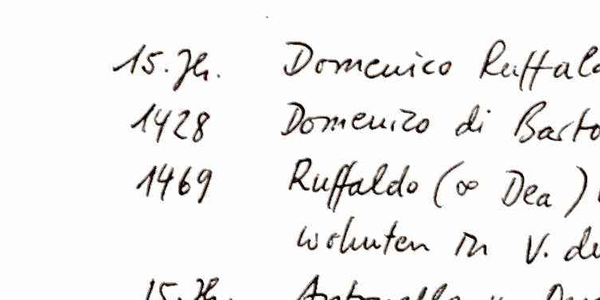 15. Jh. Domenico Ruffald
1428 Domenico di Barto
1469 Ruffaldo (∞ Dea)
wohnten in V. de
15. Jh.